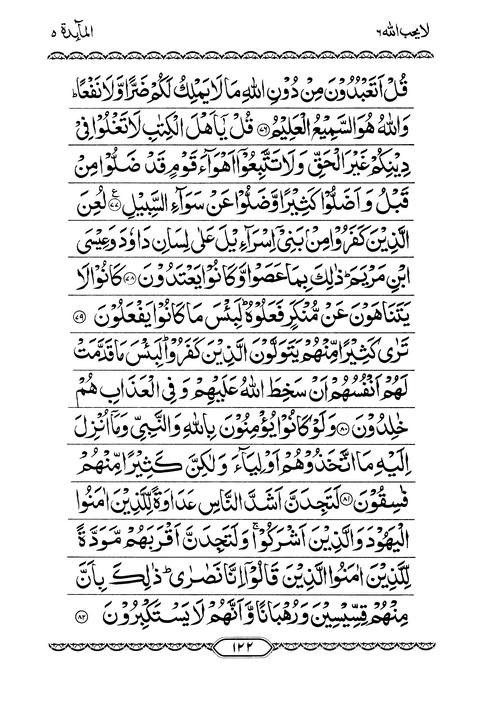 لا يحب الله ٦
المآئدة ٥
قُلْ اَتَعْبُدُوْنَ مِنْ دُوْنِ اللّٰهِ مَا لَا يَمْلِكُ لَكُمْ ضَرًّا وَّلَا نَفْعًاؕ
وَاللّٰهُ هُوَ السَّمِيْعُ الْعَلِيْمُ ﴿۷۶﴾ قُلْ يٰۤاَهْلَ الْكِتٰبِ لَا تَغْلُوْا فِيْ
دِيْنِكُمْ غَيْرَ الْحَقِّ وَلَا تَتَّبِعُوْۤا اَهْوَآءَ قَوْمٍ قَدْ ضَلُّوْا مِنْ
قَبْلُ وَ اَضَلُّوْا كَثِيْرًا وَّضَلُّوْا عَنْ سَوَآءِ السَّبِيْلِ ﴿۷۷﴾ ع لُعِنَ
الَّذِيْنَ كَفَرُوْا مِنْۢ بَنِيْۤ اِسْرَآءِيْلَ عَلٰى لِسَانِ دَاوٗدَ وَعِيْسَى
ابْنِ مَرْيَمَؕ ذٰلِكَ بِمَا عَصَوْا وَّكَانُوْا يَعْتَدُوْنَ ﴿۷۸﴾ كَانُوْا لَا
يَتَنَاهَوْنَ عَنْ مُّنْكَرٍ فَعَلُوْهُؕ لَبِئْسَ مَا كَانُوْا يَفْعَلُوْنَ ﴿۷۹﴾
تَرٰى كَثِيْرًا مِّنْهُمْ يَتَوَلَّوْنَ الَّذِيْنَ كَفَرُوْاؕ لَبِئْسَ مَا قَدَّمَتْ
لَهُمْ اَنْفُسُهُمْ اَنْ سَخِطَ اللّٰهُ عَلَيْهِمْ وَ فِي الْعَذَابِ هُمْ
خٰلِدُوْنَ ﴿۸۰﴾ وَلَوْ كَانُوْا يُؤْمِنُوْنَ بِاللّٰهِ وَالنَّبِيِّ وَمَاۤ اُنْزِلَ
اِلَيْهِ مَا اتَّخَذُوْهُمْ اَوْلِيَآءَ وَلٰكِنَّ كَثِيْرًا مِّنْهُمْ
فٰسِقُوْنَ ﴿۸۱﴾ لَتَجِدَنَّ اَشَدَّ النَّاسِ عَدَاوَةً لِّلَّذِيْنَ اٰمَنُوا
الْيَهُوْدَ وَالَّذِيْنَ اَشْرَكُوْاۚ وَلَتَجِدَنَّ اَقْرَبَهُمْ مَّوَدَّةً
لِّلَّذِيْنَ اٰمَنُوا الَّذِيْنَ قَالُوْۤا اِنَّا نَصٰرٰىؕ ذٰلِكَ بِاَنَّ
مِنْهُمْ قِسِّيْسِيْنَ وَرُهْبَانًا وَّاَنَّهُمْ لَا يَسْتَكْبِرُوْنَ ﴿۸۲﴾
١٢٢